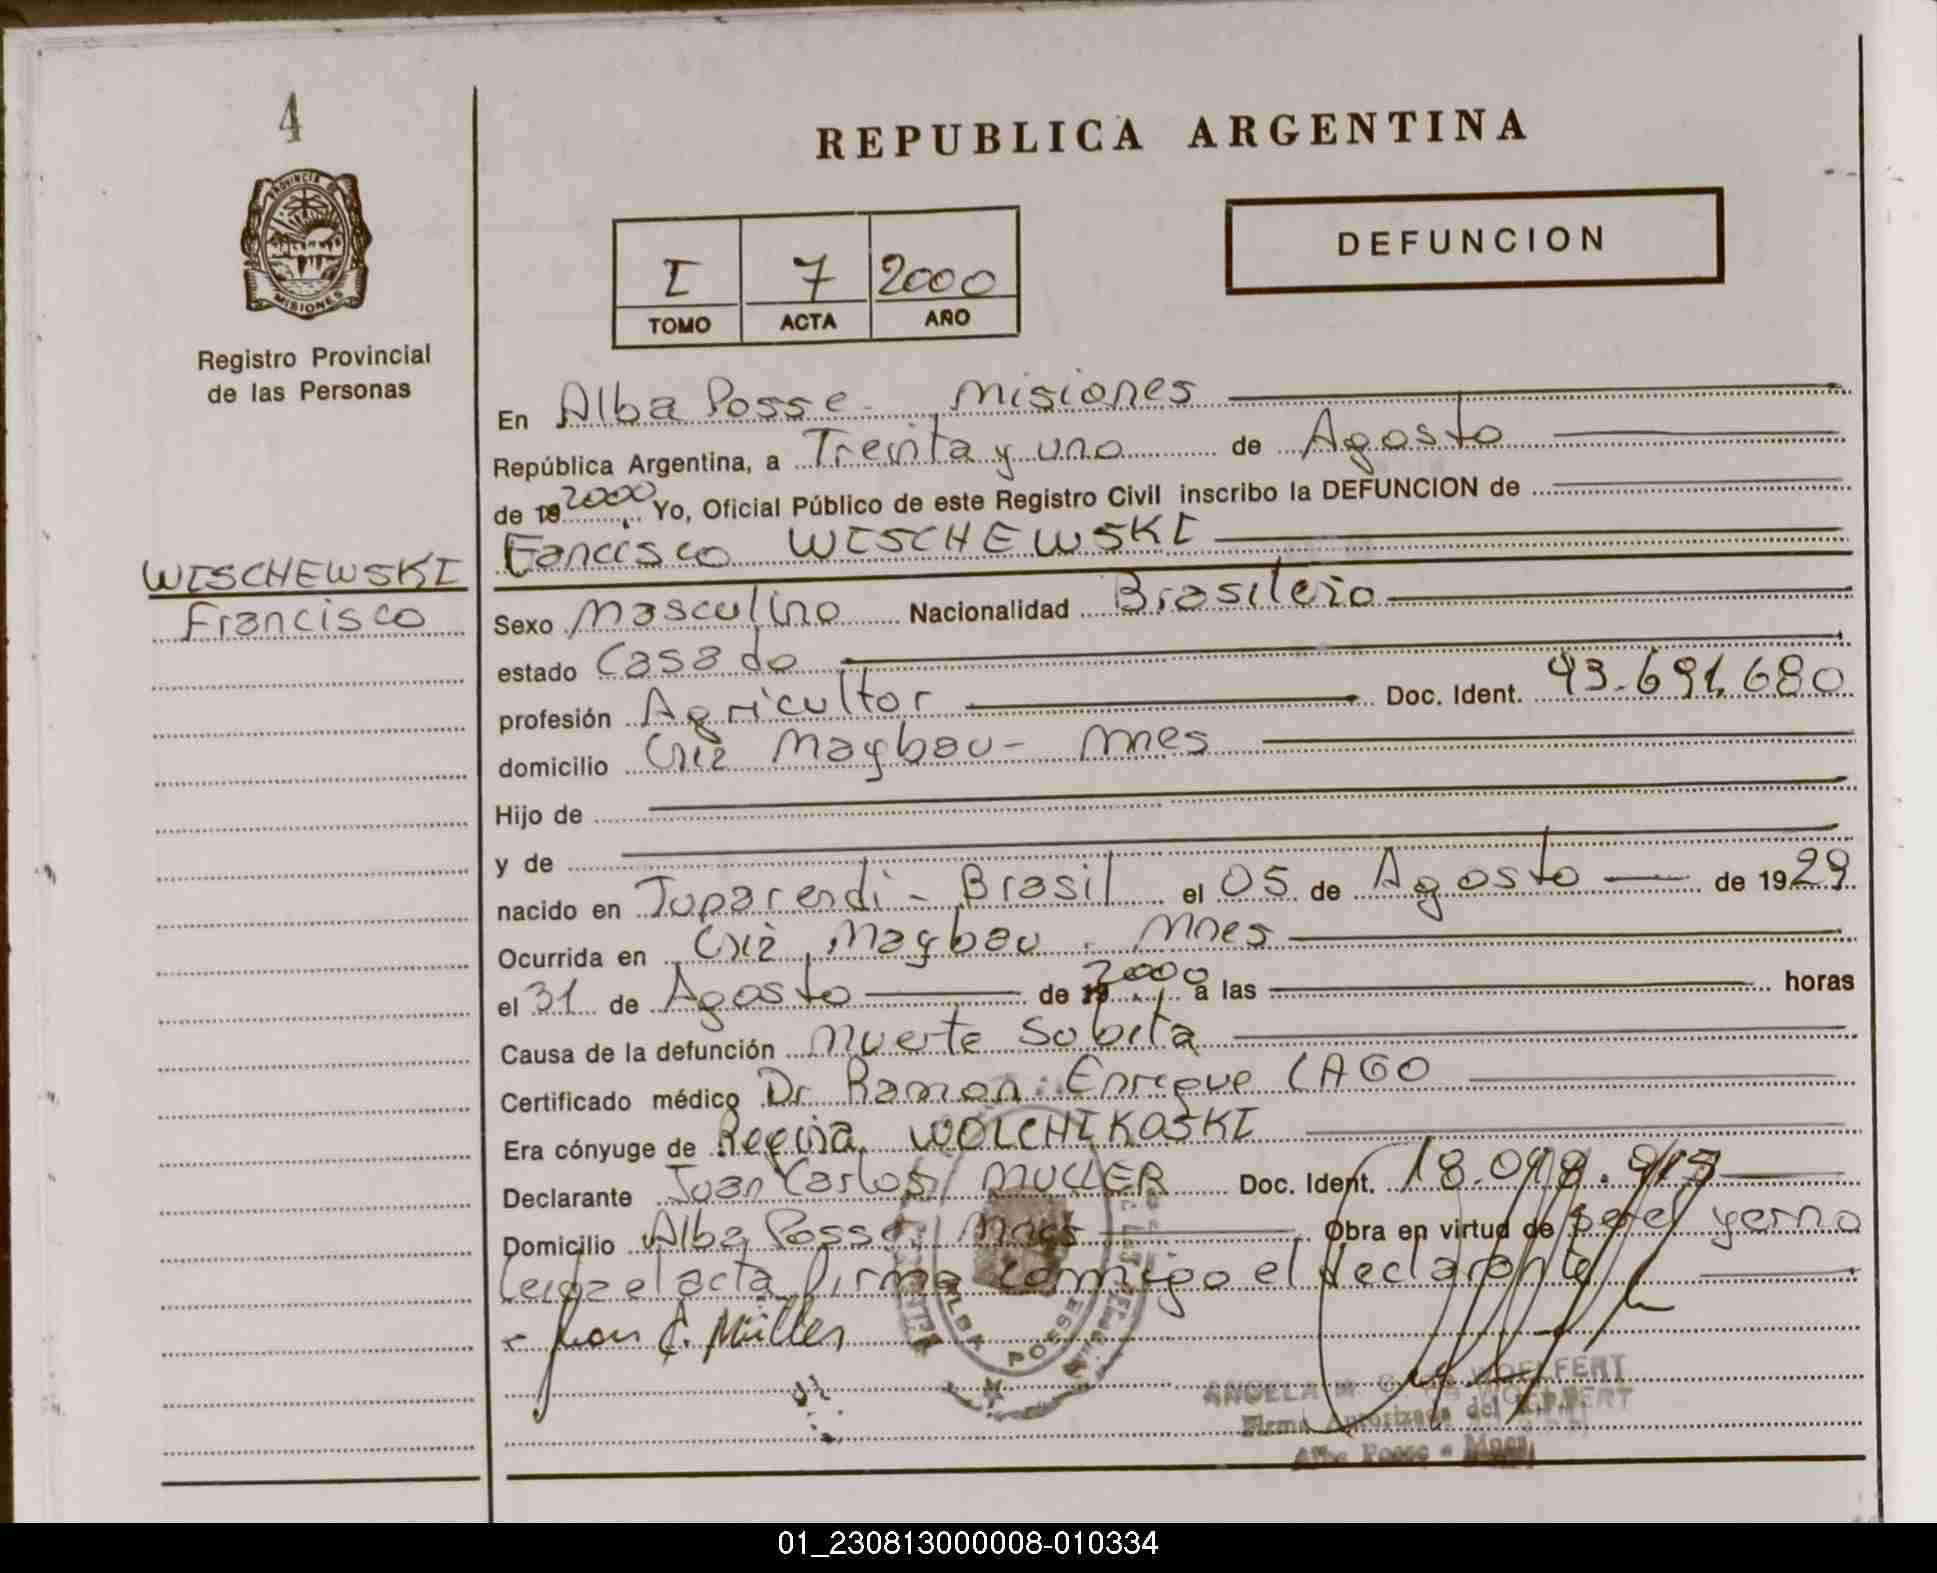 4
REPUBLICA ARGENTINA
PROVINCIA DE
MISIONES
Registro Provincial
de las Personas
I 7 2000
TOMO ACTA AÑO
DEFUNCION
En Alba Posse - Misiones
República Argentina, a Treinta y uno de Agosto
de 19 2000 Yo, Oficial Público de este Registro Civil inscribo la DEFUNCION de
Francisco WISCHEWSKI
WISCHEWSKI
Francisco
Sexo Masculino Nacionalidad Brasilero
estado Casado
profesión Agricultor Doc. Ident. 93.691.680
domicilio Cnia Maybau - Mnes
Hijo de
y de
nacido en Tuparendi - Brasil el 05 de Agosto de 1929
Ocurrida en Cnia Maybau - Mnes
el 31 de Agosto de 19 2000 a las horas
Causa de la defunción Muerte Subita
Certificado médico Dr. Ramon Enrique LAGO
Era cónyuge de Regina WOLCHIKOSKI
Declarante Juan Carlos MULLER Doc. Ident. 18.
Domicilio Alba Posse Mnes Obra en virtud de ser el yerno
Leida el acta firma conmigo el declarante
Juan C. Müller
ALBA POSSE
ANGELA M. WOELFERT
Firma Autorizada del R.P.P.
Alba Posse - Mnes.
01_230813000008-010334